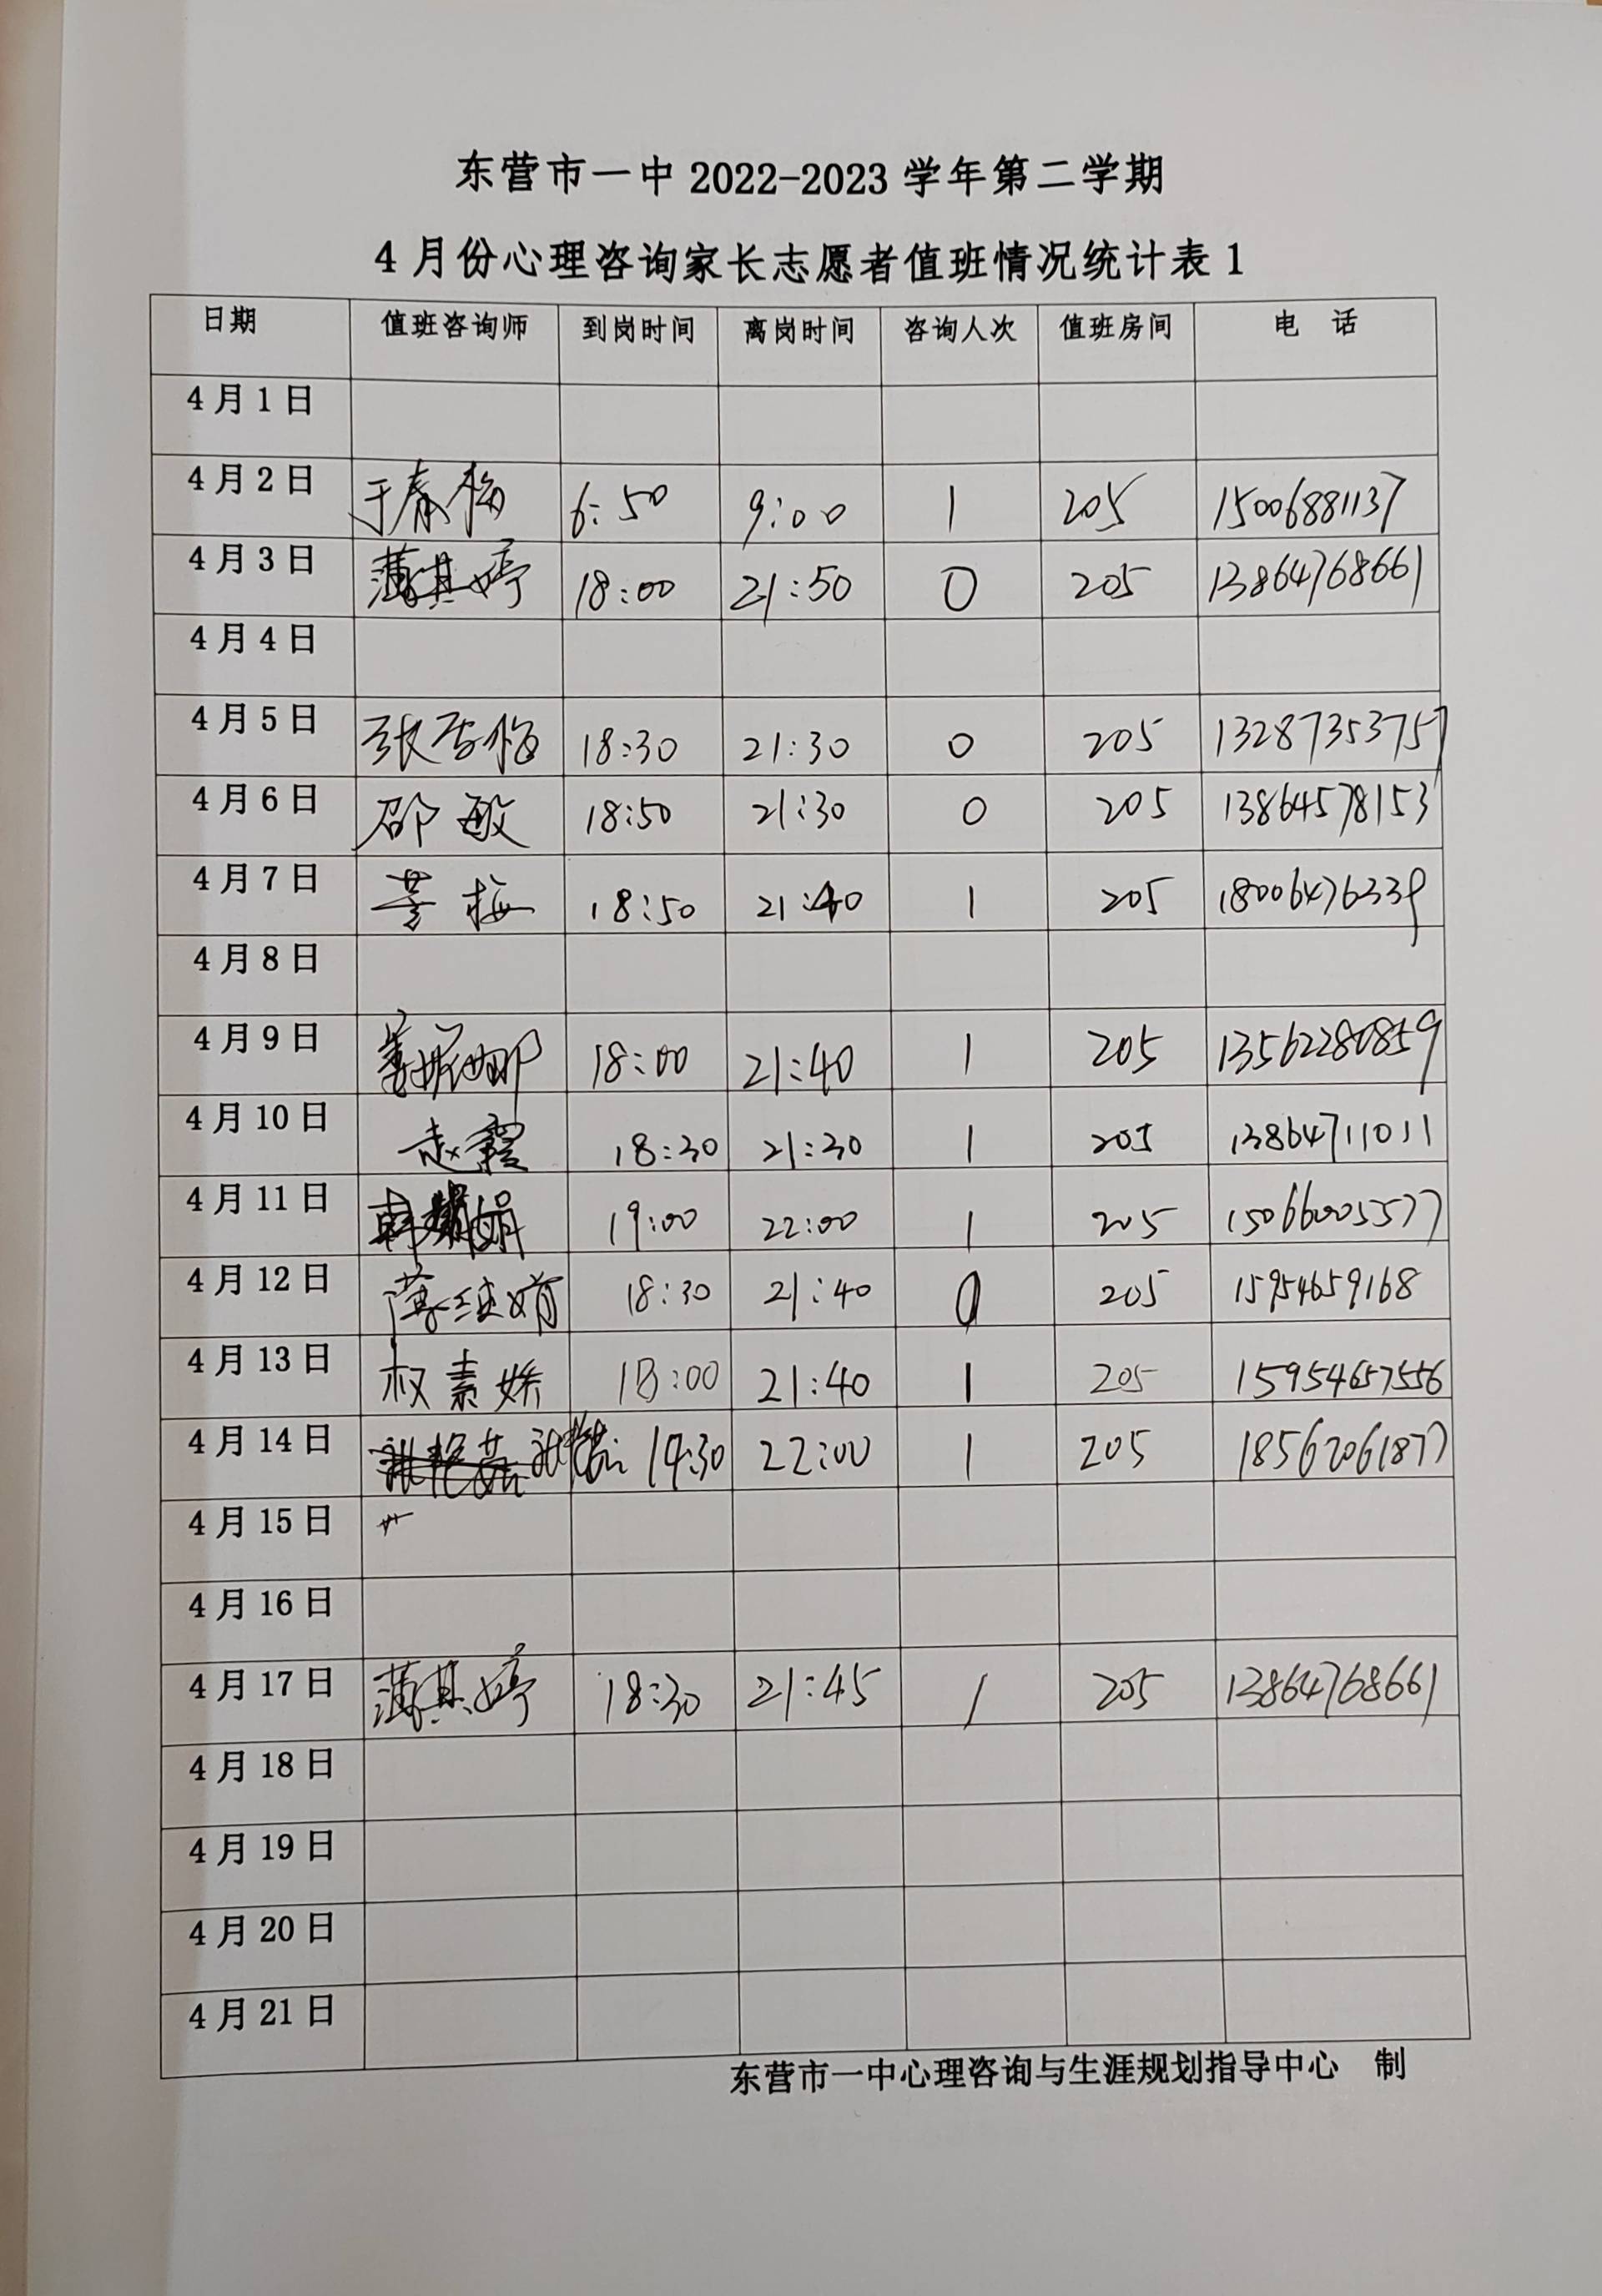 东营市一中 2022-2023 学年第二学期
4 月份心理咨询家长志愿者值班情况统计表 1
日期 值班咨询师 到岗时间 离岗时间 咨询人次 值班房间 电 话
4 月 1 日
4 月 2 日 于春梅 6:50 9:00 1 205 15006881137
4 月 3 日 薄其婷 18:00 21:50 0 205 13864768661
4 月 4 日
4 月 5 日 18:30 21:30 0 205 13287353757
4 月 6 日 邵敏 18:50 21:30 0 205 13864578153
4 月 7 日 18:50 21:40 1 205 18006476339
4 月 8 日
4 月 9 日 姜娜娜 18:00 21:40 1 205 13562280859
4 月 10 日 赵霞 18:30 21:30 1 205 13864711011
4 月 11 日 19:00 22:00 1 205 15066005577
4 月 12 日 18:30 21:40 0 205 15954659168
4 月 13 日 权素娇 18:00 21:40 1 205 15954657556
4 月 14 日 22:00 1 205 18562061877
4 月 15 日
4 月 16 日
4 月 17 日 薄其婷 18:30 21:45 1 205 13864768661
4 月 18 日
4 月 19 日
4 月 20 日
4 月 21 日
东营市一中心理咨询与生涯规划指导中心 制